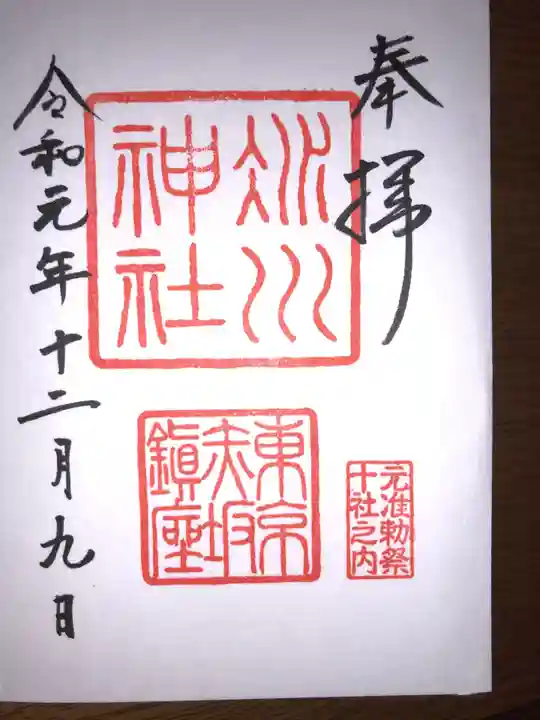 奉拝
氷川
神社
東京
赤坂
鎮座
元准勅祭
十社之内
令和元年十二月九日